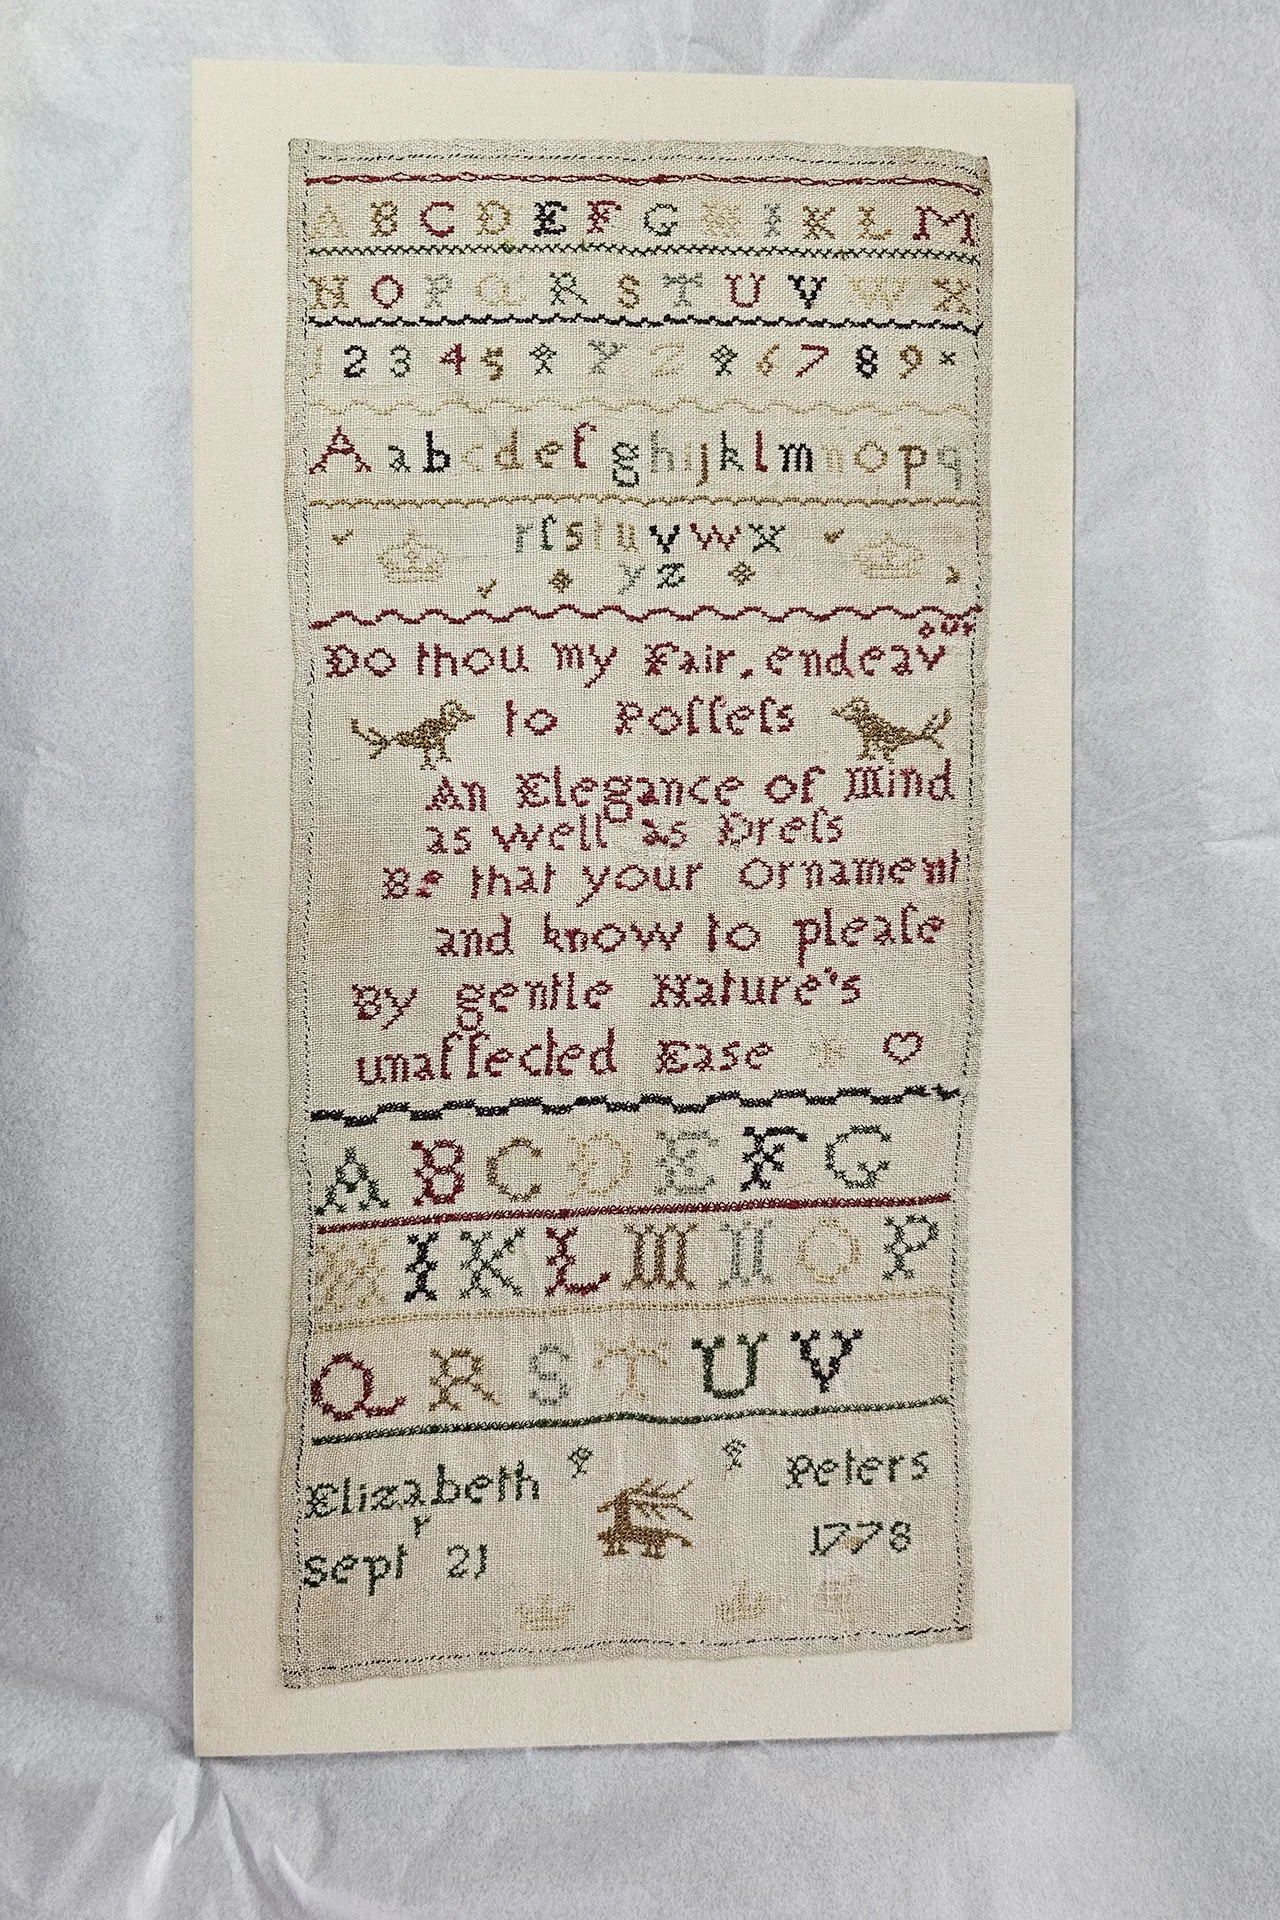 A B C D E F G H I K L M
N O P Q R S T U V W X
1 2 3 4 5 Y Z 6 7 8 9
A a b c d e f g h i j k l m n o p q
r ſ s t u v w x
y z
Do thou my Fair, endeavour
to Poſſeſs
An Elegance of Mind
as well as Dreſs
Be that your Ornament
and know to pleaſe
By gentle Nature's
unaffected Ease
A B C D E F G
H I K L M N O P
Q R S T U V
Elizabeth Peters
Septr 21 1778